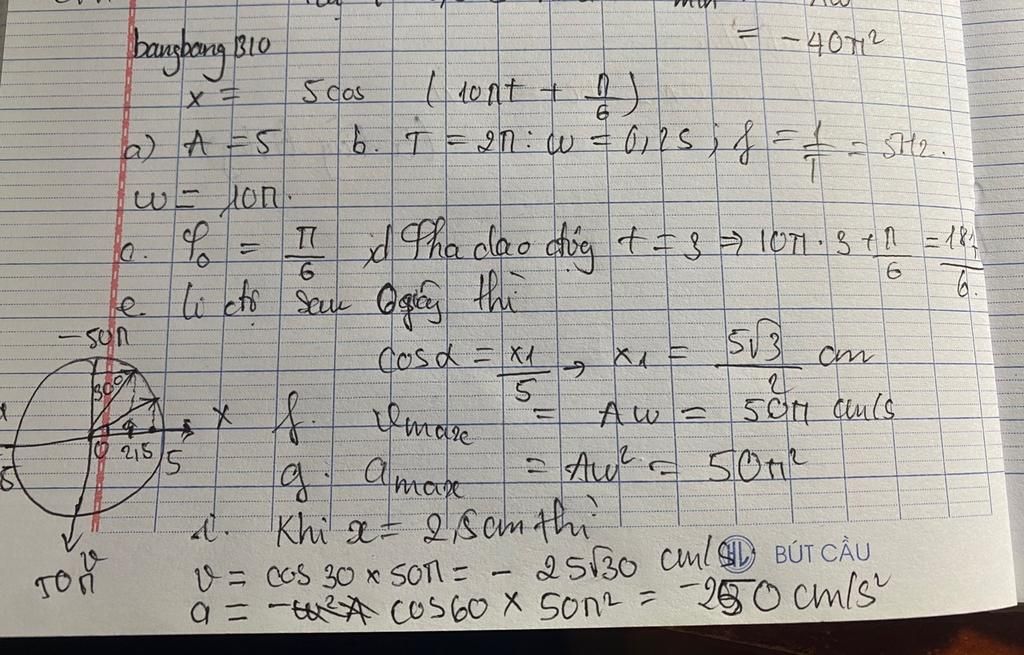 min
= -40π²
bangbang B10
x = 5cos (10πt + π/6)
a) A = 5 b. T = 2π : ω = 0,2s ; f = 1/T = 5Hz.
ω = 10π.
c. φ₀ = π/6 d Pha dao động t = 3 ⇒ 10π · 3 + π/6 = 181/6.
e. li độ sau 0 giây thì
-50π
cosα = x1/5 → x1 = 5√3/2 cm
30°
x
f. vmax = Aω = 50π cm/s
0 2,5 5
g. amax = Aω² = 50π²
i. Khi x = 2,5cm thì
v
50π
BÚT CẦU
v = cos 30 x 50π = - 25√30 cm/s
a = cos60 x 50π² = -250 cm/s²